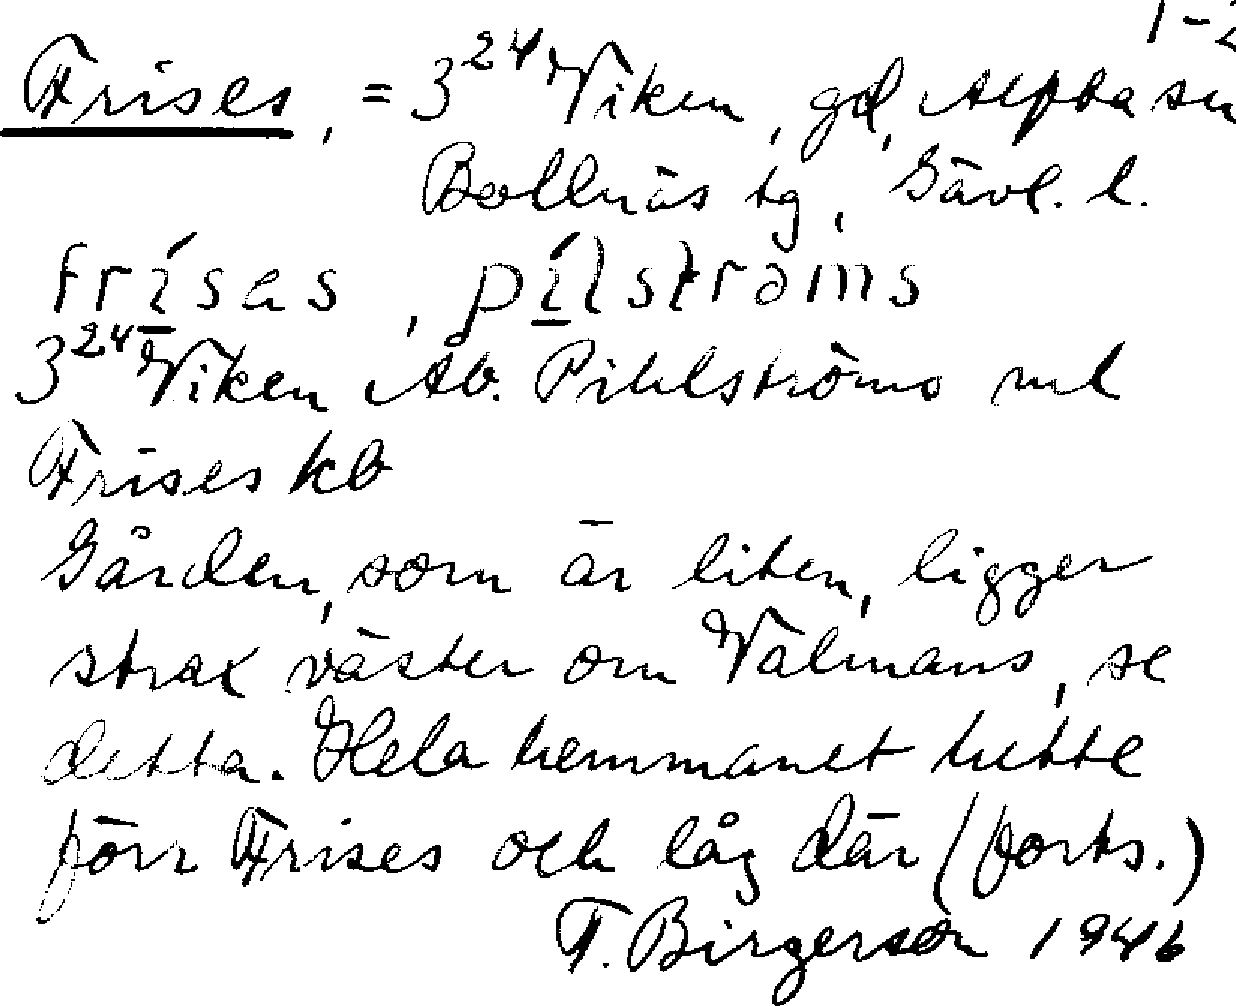 1-2
Frises, = 3²⁴ Viken, gd, Alfta sn
Bollnäs tg, Gävl. l.
frísas, pílstrøms
3²⁴ Viken Ab. Pihlströms ml
Frises kb
Gården, som är liten, ligger
strax väster om Valmans, se
detta. Hela hemmanet hette
förr Frises och låg där (forts.)
F. Birgerson 1946